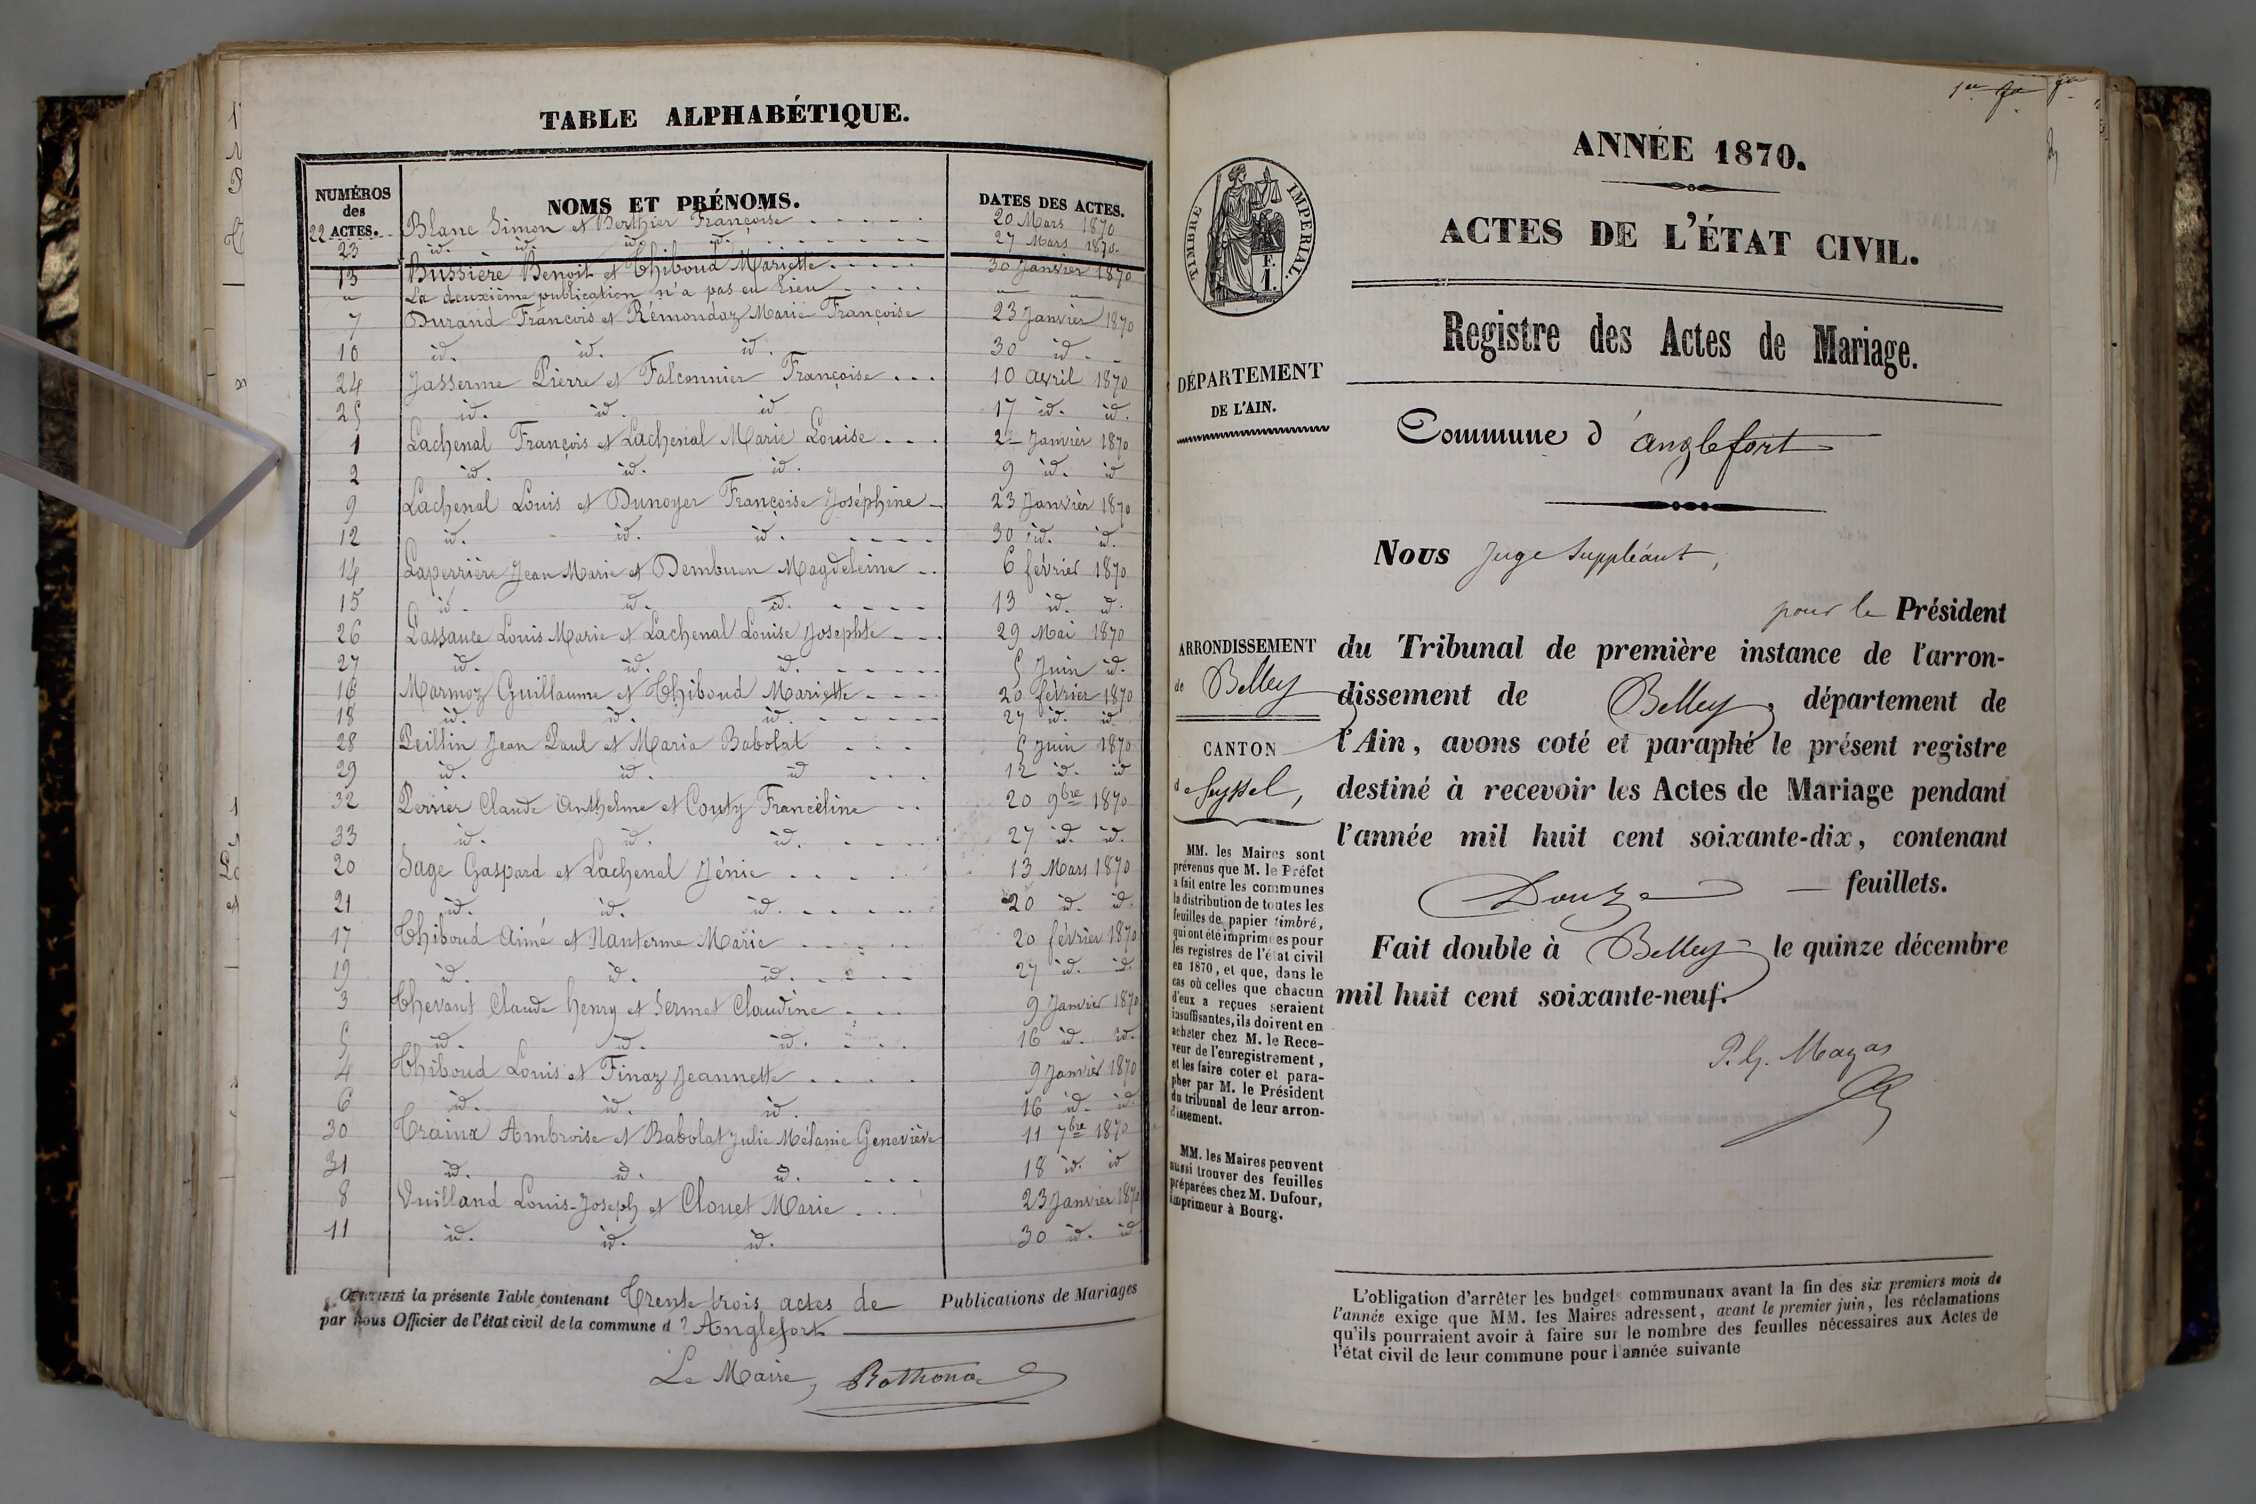 TABLE ALPHABÉTIQUE.
NUMÉROS des ACTES. NOMS ET PRÉNOMS. DATES DES ACTES.
22 Blanc Simon et Berthier Françoise 20 Mars 1870
23 id. id. id. id. 27 Mars 1870.
13 Bussière Benoit et Thiboud Mariette 30 Janvier 1870
" La deuxième publication n'a pas eu lieu
7 Durand François et Rémondaz Marie Françoise 23 Janvier 1870
10 id. id. id. 30 id.
24 Jasserme Pierre et Falconnier Françoise 10 avril 1870
25 id. id. id 17 id. id.
1 Lachenal François et Lachenal Marie Louise 2 Janvier 1870
2 id. id. id. 9 id. id
9 Lachenal Louis et Dunoyer Françoise Joséphine 23 Janvier 1870
12 id. id. id. 30 id. id.
14 Laperrière Jean Marie et Dembuen Magdeleine 6 février 1870
15 id. id. id. 13 id. id.
26 Lassauce Louis Marie et Lachenal Louise Josephte 29 Mai 1870
27 id. id. id. 5 Juin id.
16 Marmoz Guillaume et Thiboud Mariette 20 février 1870
18 id. id. id. 27 id. id
28 Peillin Jean Paul et Maria Babolat 5 Juin 1870
29 id. id. id 12 id. id
32 Perrier Claude Anthelme et Couty Francéline 20 9bre 1870
33 id. id. id. 27 id. id.
20 Sage Gaspard et Lachenal Jénie 13 Mars 1870
21 id. id. id. 20 id. id.
17 Thiboud Aimé et Nanterme Marie 20 février 1870
19 id. id. id. 27 id. id.
3 Thevant Claude henry et Sermet Claudine 9 Janvier 1870
5 id. id. id. 16 id. id.
4 Thiboud Louis et Finaz Jeannette 9 Janvier 1870
6 id. id. id. 16 id. id.
30 Traina Ambroise et Babolat Julie Mélanie Geneviève 11 7bre 1870
31 id. id. id. 18 id. id
8 Vuilland Louis-Joseph et Clouet Marie 23 Janvier 1870
11 id. id. id. 30 id. id
CERTIFIÉ la présente Table contenant Trente trois actes de Publications de Mariages
par Nous Officier de l'état civil de la commune d'Anglefort
Le Maire,
ANNÉE 1870.
ACTES DE L'ÉTAT CIVIL.
TIMBRE IMPERIAL.
F.
1.
Registre des Actes de Mariage.
DÉPARTEMENT
DE L'AIN.
Commune d'anglefort
Nous Juge Suppléant,
pour le Président
du Tribunal de première instance de l'arron-
dissement de Belley, département de
l'Ain, avons coté et paraphé le présent registre
destiné à recevoir les Actes de Mariage pendant
l'année mil huit cent soixante-dix, contenant
Douze feuillets.
Fait double à Belley le quinze décembre
mil huit cent soixante-neuf.
P. G. Mazas
ARRONDISSEMENT
de Belley
CANTON
de Seyssel,
MM. les Maires sont
prévenus que M. le Préfet
a fait entre les communes
la distribution de toutes les
feuilles de papier timbré,
qui ont été imprimées pour
les registres de l'état civil
en 1870, et que, dans le
cas où celles que chacun
d'eux a reçues seraient
insuffisantes, ils doivent en
acheter chez M. le Rece-
veur de l'enregistrement,
et les faire coter et para-
pher par M. le Président
du tribunal de leur arron-
dissement.
MM. les Maires peuvent
aussi trouver des feuilles
préparées chez M. Dufour,
imprimeur à Bourg.
L'obligation d'arrêter les budgets communaux avant la fin des six premiers mois de
l'année exige que MM. les Maires adressent, avant le premier juin, les réclamations
qu'ils pourraient avoir à faire sur le nombre des feuilles nécessaires aux Actes de
l'état civil de leur commune pour l'année suivante